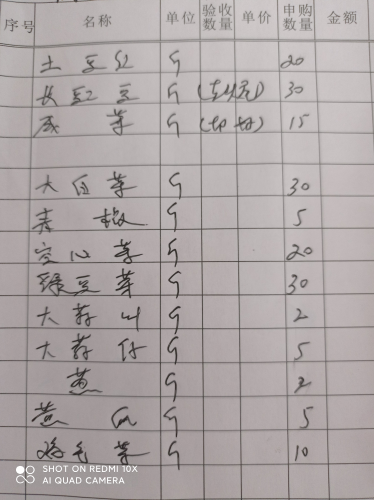 序号 名称 单位 验收数量 单价 申购数量 金额
土豆 斤 20
长豇豆 斤 30
斤 15
大白菜 斤 30
青椒 斤 5
空心菜 斤 20
绿豆芽 斤 30
大蒜 斤 2
大蒜 斤 5
葱 斤 2
黄瓜 斤 5
鸡毛菜 斤 10
SHOT ON REDMI 10X
AI QUAD CAMERA